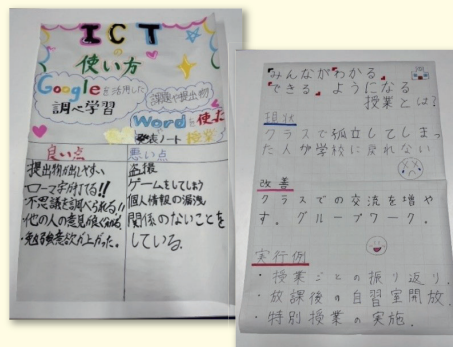 ICT
の
使い方
Googleを活用した
調べ学習
課題や提出物
Wordを使った
や発表ノート 授業
良い点
提出物が出しやすい
ローマ字が打てる!!
不思議を調べられる!!
他の人の意見が良くわかる
勉強意欲が上がった。
悪い点
盗撮
ゲームをしてしまう
個人情報の漏洩
関係のないことを
している。
「みんながわかる」
「できる」ようになる
授業とは?
現状
クラスで孤立してしまっ
た人が学校に戻れない
改善
クラスでの交流を増や
す。グループワーク。
実行例
・授業ごとの振り返り。
・放課後の自習室開放。
・特別授業の実施。